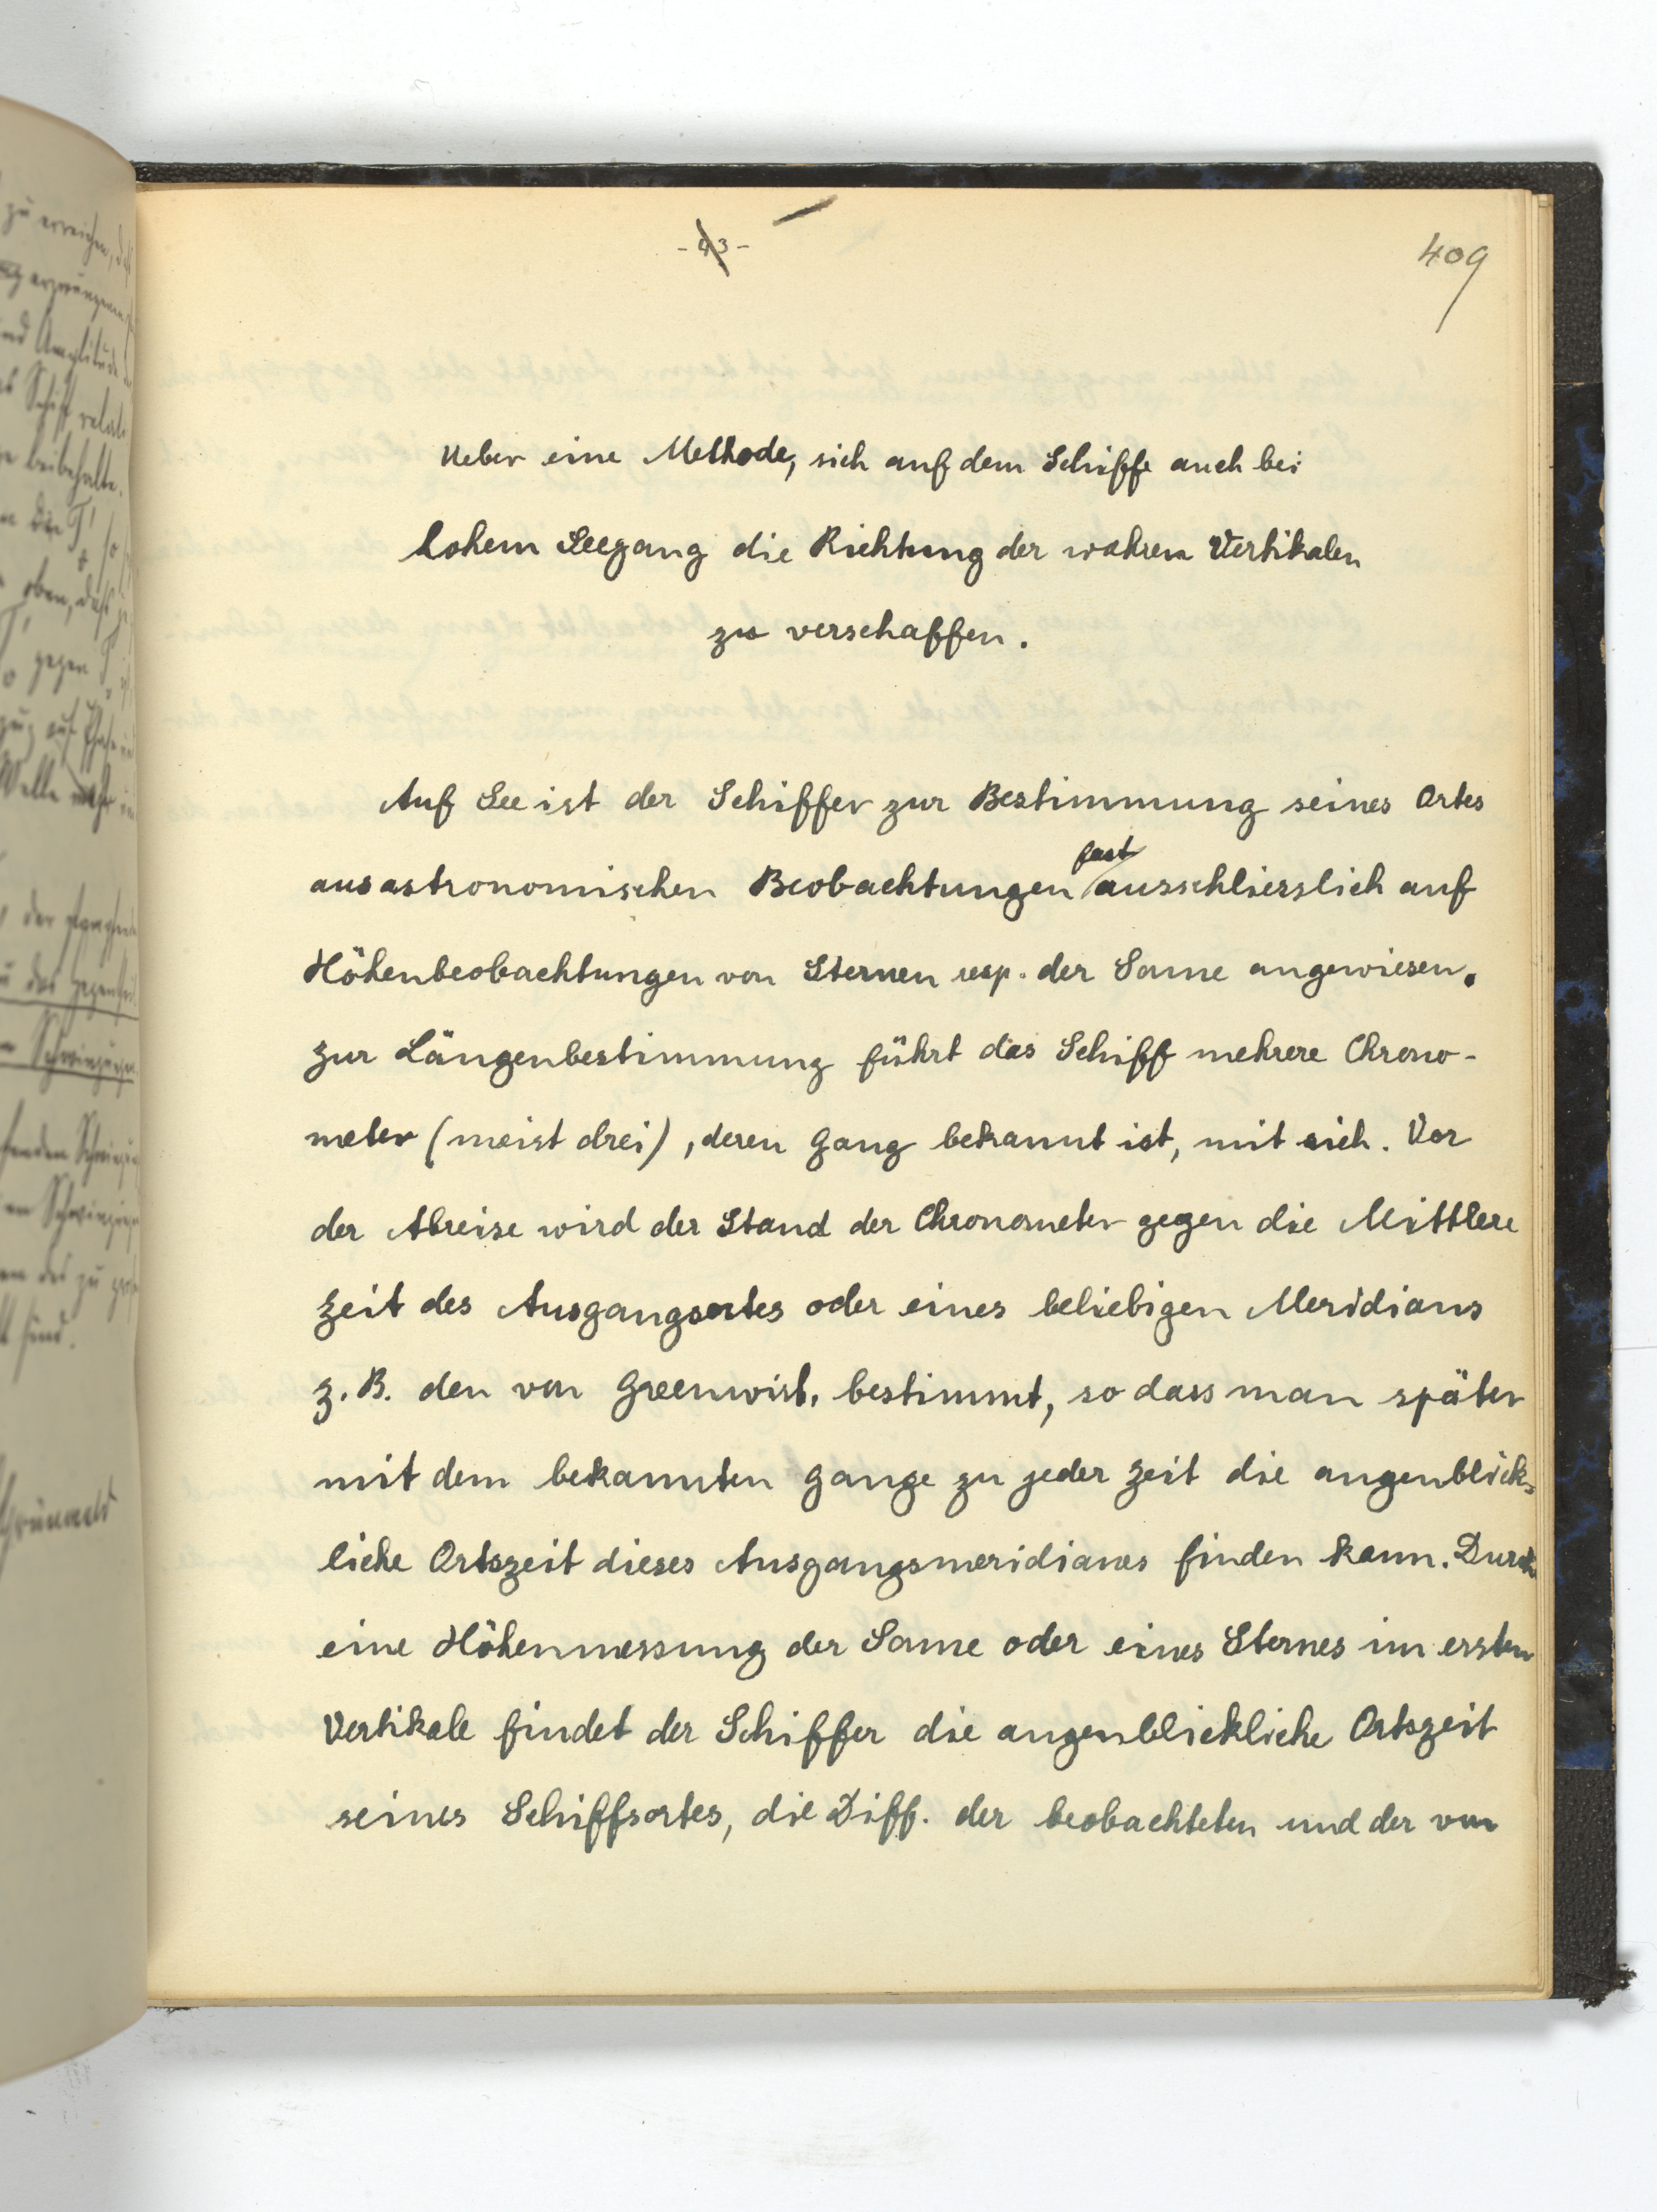 409
Ueber eine Methode, sich auf dem Schiffe auch bei
hohem Seegang die Richtung der wahren Vertikalen
zu verschaffen.
Auf See ist der Schiffer zur Bestimmung seines Ortes
aus astronomischen Beobachtungen fast ausschliesslich auf
Höhenbeobachtungen von Sternen resp. der Sonne angewiesen.
Zur Längenbestimmung führt das Schiff mehrere Chrono-
meter (meist drei), deren Gang bekannt ist, mit sich. Vor
der Abreise wird der Stand der Chronometer gegen die Mittlere
Zeit des Ausgangsortes oder eines beliebigen Meridians
z. B. den von Greenwich, bestimmt, so dass man später
mit dem bekannten Gange zu jeder Zeit die augenblick-
liche Ortszeit dieses Ausgangsmeridianes finden kann. Durch
eine Höhenmessung der Sonne oder eines Sternes im ersten
Vertikale findet der Schiffer die augenblickliche Ortszeit
seines Schiffsortes, die Diff. der beobachteten und der von